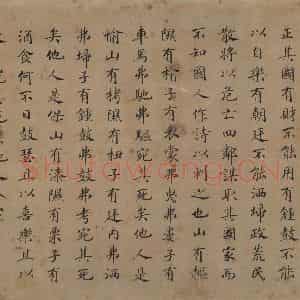 正其國有財不能用有鍾鼓不能
以自樂有朝廷不能洒埽政荒民
散將以危亡四鄰謀取其國家而
不知國人作詩以刺之也山有樞
隰有榆子有衣裳弗曳弗婁子有
車馬弗馳弗驅宛其死矣他人是
愉山有栲隰有杻子有廷內弗洒
弗埽子有鍾鼓弗鼓弗考宛其死
矣他人是保山有漆隰有栗子有
酒食何不日鼓瑟且以喜樂且以
shufawang.CN